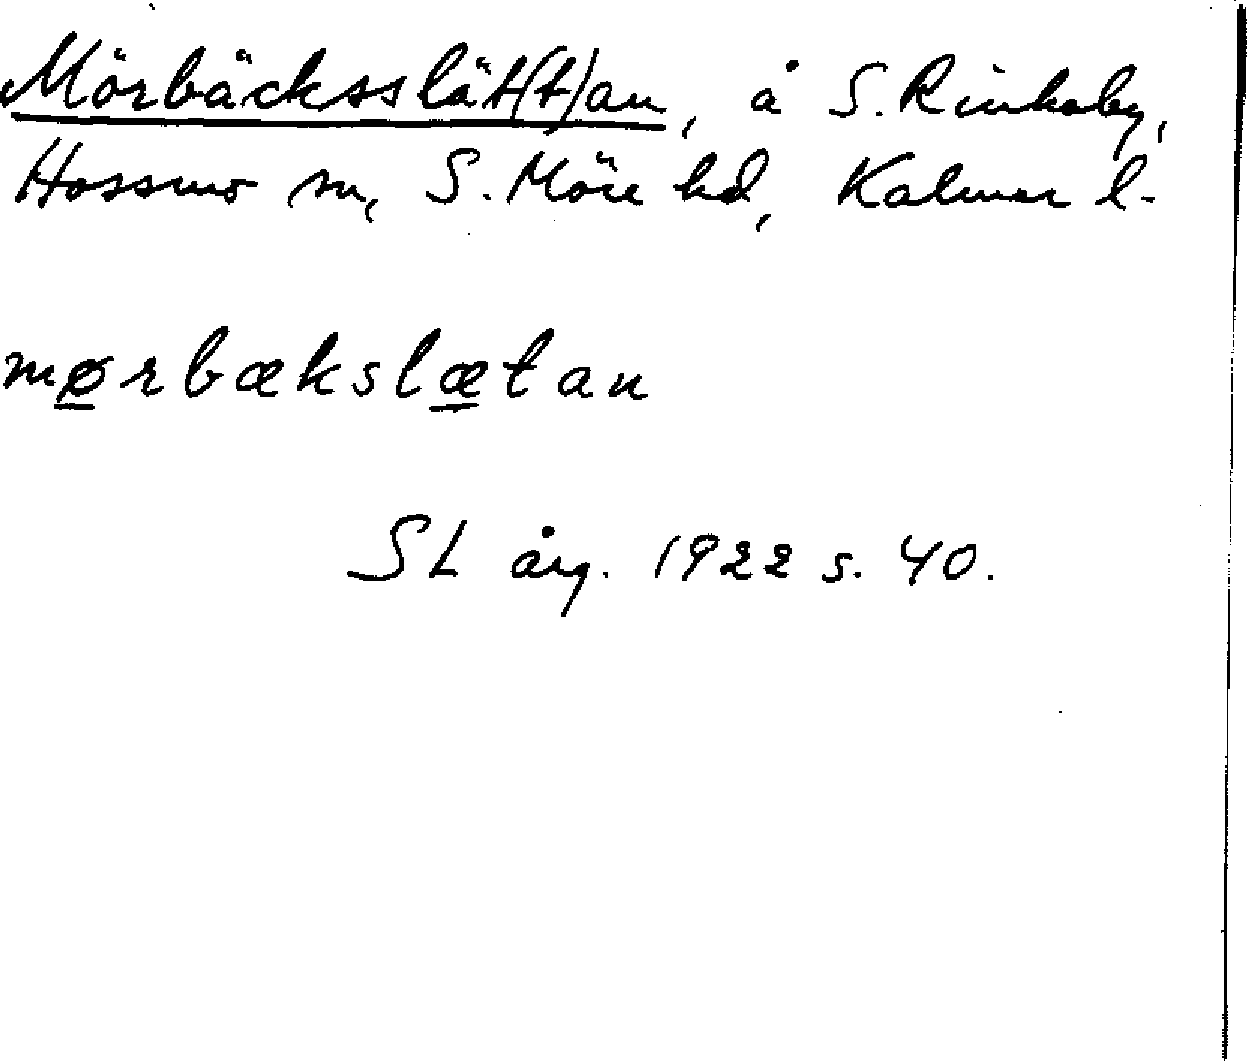 Mörbäcksslät(t)an, å S. Rinkaby,
Hossmo sn, S. Möre hd, Kalmar l.
mørbækslætan
SL årg. 1922 s. 40.